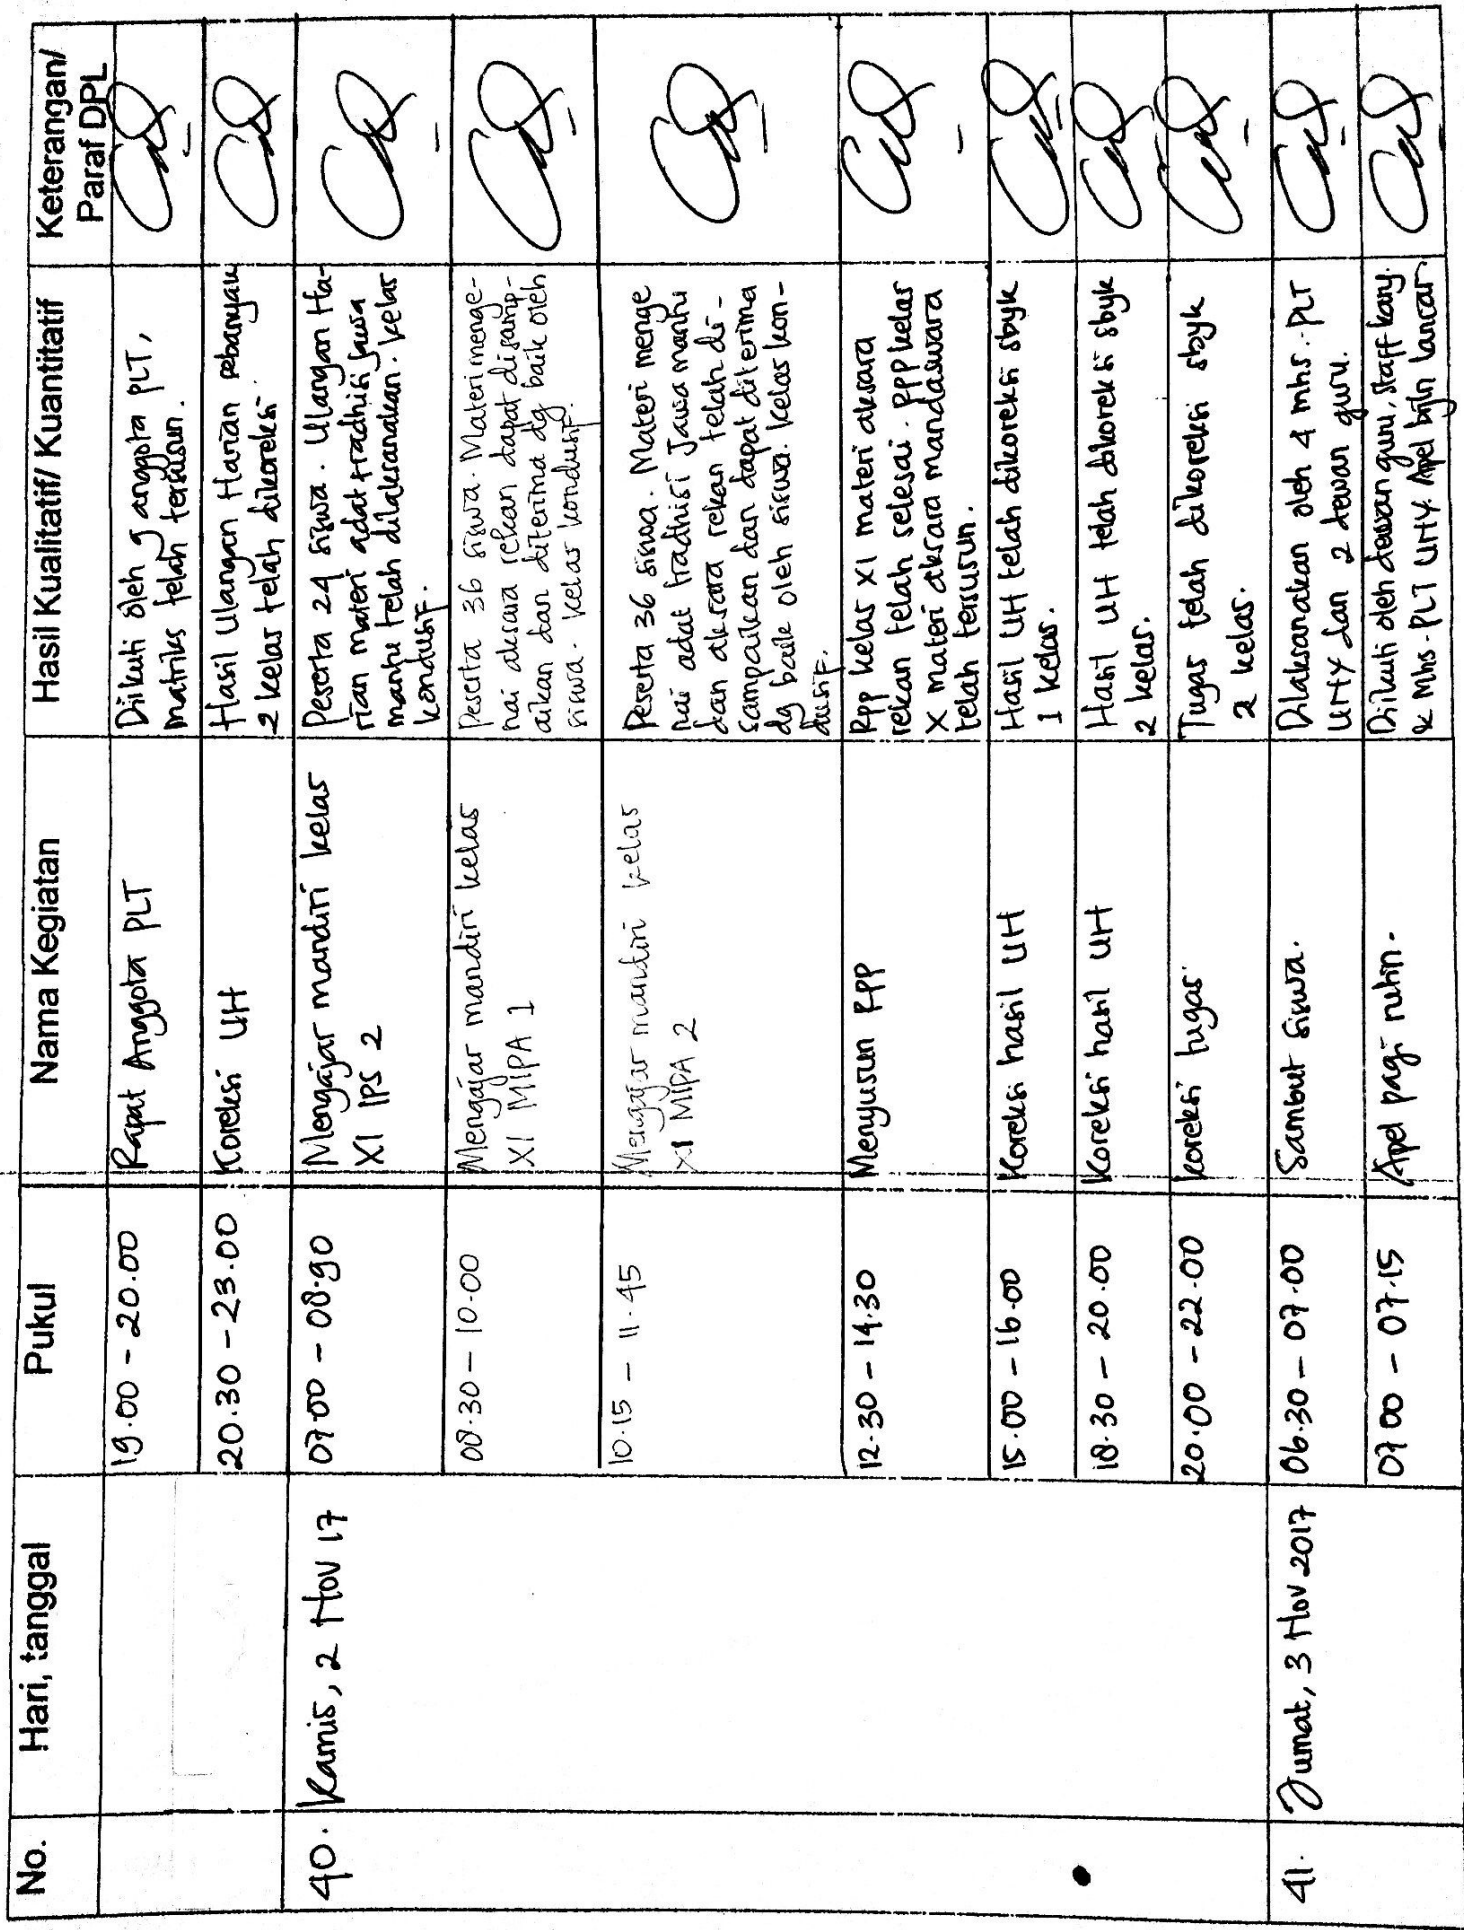 No.
Hari, tanggal
Pukul
Nama Kegiatan
Hasil Kualitatif/ Kuantitatif
Keterangan/
Paraf DPL
19.00 - 20.00
Rapat Anggota PLT
Dikuti oleh 9 anggota PLT,
matriks telah tersusun.
20.30 - 23.00
Koreksi UH
Hasil Ulangan Harian sebanyak
2 kelas telah dikoreksi.
40.
Kamis, 2 Nov 17
07.00 - 08.90
Mengajar mandiri kelas
XI IPS 2
Peserta 24 siswa. Ulangan Ha-
rian materi adat tradhisi Jawa
mantu telah dilaksanakan. Kelas
kondusif.
08.30 - 10.00
Mengajar mandiri kelas
XI MIPA 1
Peserta 36 siswa. Materi menge-
nai aksara rekan dapat disamp-
aikan dan diterima dg baik oleh
siswa. Kelas kondusif.
10.15 - 11.45
Mengajar mandiri kelas
XI MIPA 2
Peserta 36 siswa. Materi menge
nai adat tradhisi Jawa mantu
dan aksara rekan telah di-
sampaikan dan dapat diterima
dg baik oleh siswa. Kelas kon-
dusif.
12.30 - 14.30
Menyusun RPP
RPP kelas XI materi aksara
rekan telah selesai. RPP kelas
X materi aksara mandaswara
telah tersusun.
15.00 - 16.00
Koreksi hasil UH
Hasil UH telah dikoreksi sbyk
1 kelas.
18.30 - 20.00
Koreksi hasil UH
Hasil UH telah dikoreksi sbyk
2 kelas.
20.00 - 22.00
Koreksi tugas
Tugas telah dikoreksi sbyk
2 kelas.
41.
Jumat, 3 Nov 2017
06.30 - 07.00
Sambut siswa.
Dilaksanakan oleh 4 mhs. PLT
UNY dan 2 dewan guru.
07 00 - 07.15
Apel pagi rutin.
Diikuti oleh dewan guru, staff kary.
& Mhs. PLT UNY. Apel bjln lancar.